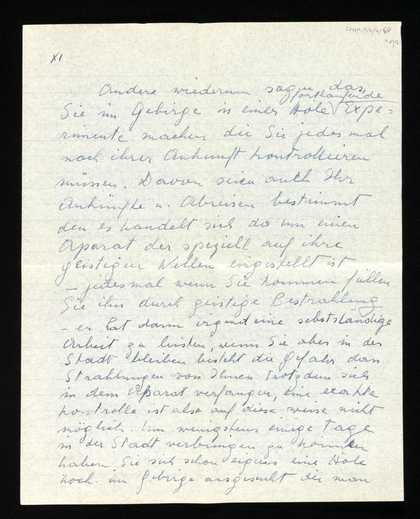 XI
Andere wiederum sagen das
fortlaufende
Sie im Gebirge in einer Hole Expe-
rimente machen die Sie jedesmal
nach ihrer Ankunft kontrollieren
müssen. Davon seien auch Ihr
Ankünfte u. Abreisen bestimmt
den es handelt sich da um einen
Aparat der speziell auf ihre
geistigen Wellen eingestellt ist
– jedesmal wenn Sie kommen füllen
Sie ihn durch geistige Bestrahlung
– er hat dann irgend eine selbstständige
Arbeit zu leisten, wenn Sie aber in der
Stadt bleiben besteht die Gefahr dass
Strahlungen von Ihnen trotzdem sich
in dem Aparat verfangen, eine exakte
Kontrolle ist also auf diese weise nicht
möglich. Um wenigstens einige Tage
in der Stadt verbringen zu können
haben Sie sich schon eigens eine Hole
hoch im Gebirge ausgesucht die man